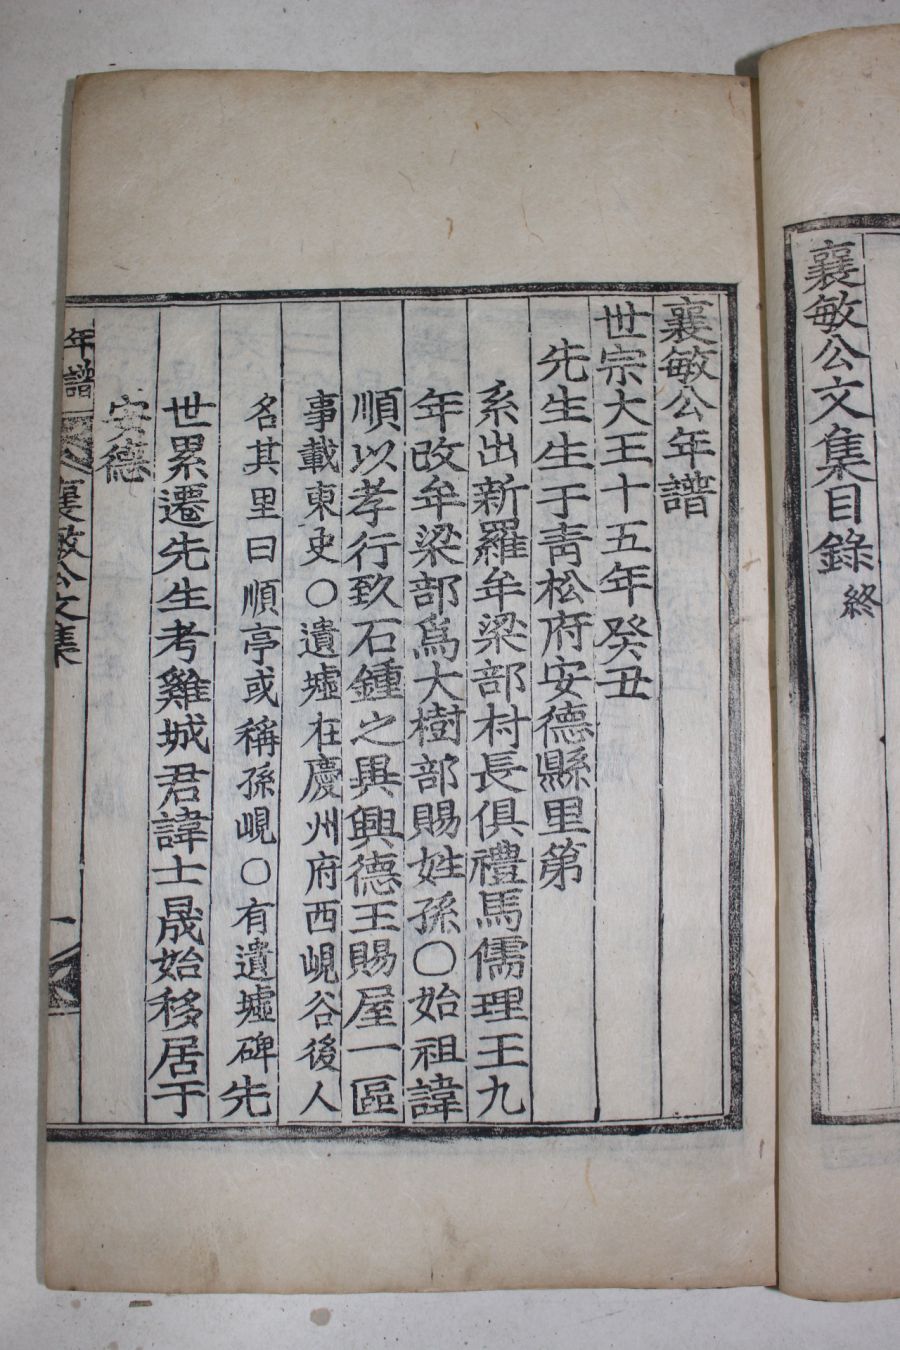 襄敏公文集目錄終
襄敏公年譜
世宗大王十五年癸丑
先生生于靑松府安德縣里第
系出新羅牟梁部村長俱禮馬儒理王九
年改牟梁部爲大樹部賜姓孫○始祖諱
順以孝行致石鍾之異興德王賜屋一區
事載東史○遺墟在慶州府西峴谷後人
名其里曰順亭或稱孫峴○有遺墟碑先
世累遷先生考雞城君諱士晟始移居于
安德
年譜
襄敏公文集
一